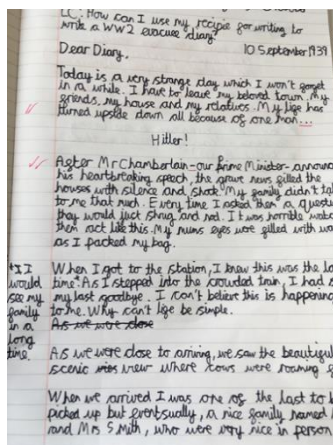 LC: How can I use my recipie for writing to
write a WW2 evacuee diary?
Dear Diary,
10 September 1939
Today is a very strange day which I won't forget
in a while. I have to leave my beloved town, my
friends, my house and my relatives. My life has
turned upside down all because of one man...
Hitler!
After Mr Chamberlain-our prime Minister-
his heartbreaking speech, the grave news filled the
houses with silence and shock. My family didn't
to me that much. Every time I asked them a
they would just shrug and nod. It was horrible
them act like this. My mums eyes were filled with
as I packed my bag.
When I got to the station, I knew this was the
time
*I I
would
see my
family
in a
long
time.
As I stepped into the crowded train, I had
my last goodbye. I can't believe this is happening
to me. Why can't life be simple.
As we were close
As we were close to arriving, we saw the beautiful
scenic view where cows were roaming
When we arrived I was one of the last to
picked up but eventually, a nice family named
and Mrs Smith, who were very nice in person.